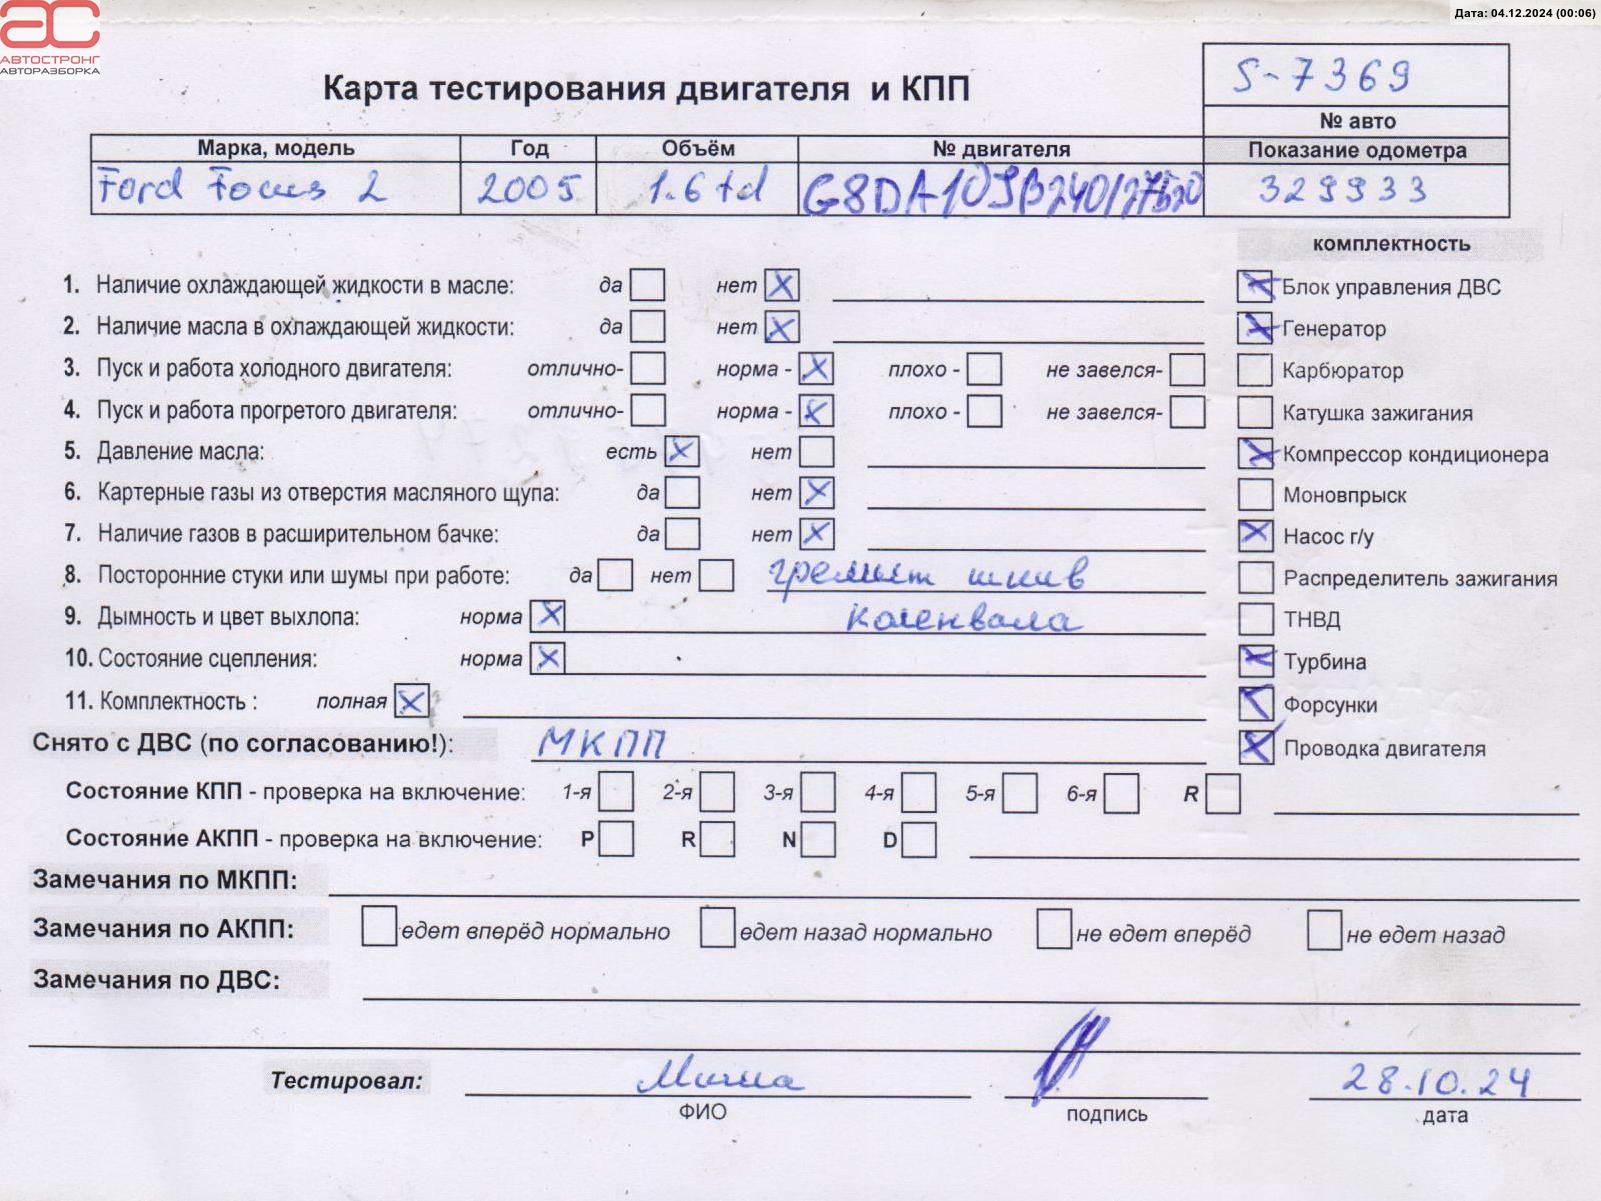 Дата: 04.12.2024 (00:06)
АС
АВТОСТРОНГ
АВТОРАЗБОРКА
Карта тестирования двигателя и КПП
S-7369
№ авто
Марка, модель Год Объём № двигателя Показание одометра
Ford Focus 2 2005 1.6 td 329933
комплектность
1. Наличие охлаждающей жидкости в масле: да нет Х Х Блок управления ДВС
2. Наличие масла в охлаждающей жидкости: да нет Х Х Генератор
3. Пуск и работа холодного двигателя: отлично- норма - Х плохо - не завелся- Карбюратор
4. Пуск и работа прогретого двигателя: отлично- норма - Х плохо - не завелся- Катушка зажигания
5. Давление масла: есть Х нет Х Компрессор кондиционера
6. Картерные газы из отверстия масляного щупа: да нет Х Моновпрыск
7. Наличие газов в расширительном бачке: да нет Х Х Насос г/у
8. Посторонние стуки или шумы при работе: да нет гремит шкив Распределитель зажигания
9. Дымность и цвет выхлопа: норма Х коленвала ТНВД
10. Состояние сцепления: норма Х Х Турбина
11. Комплектность : полная Х Х Форсунки
Снято с ДВС (по согласованию!): МКПП Х Проводка двигателя
Состояние КПП - проверка на включение: 1-я 2-я 3-я 4-я 5-я 6-я R
Состояние АКПП - проверка на включение: P R N D
Замечания по МКПП:
Замечания по АКПП: едет вперёд нормально едет назад нормально не едет вперёд не едет назад
Замечания по ДВС:
Тестировал: Миша 28.10.24
ФИО подпись дата